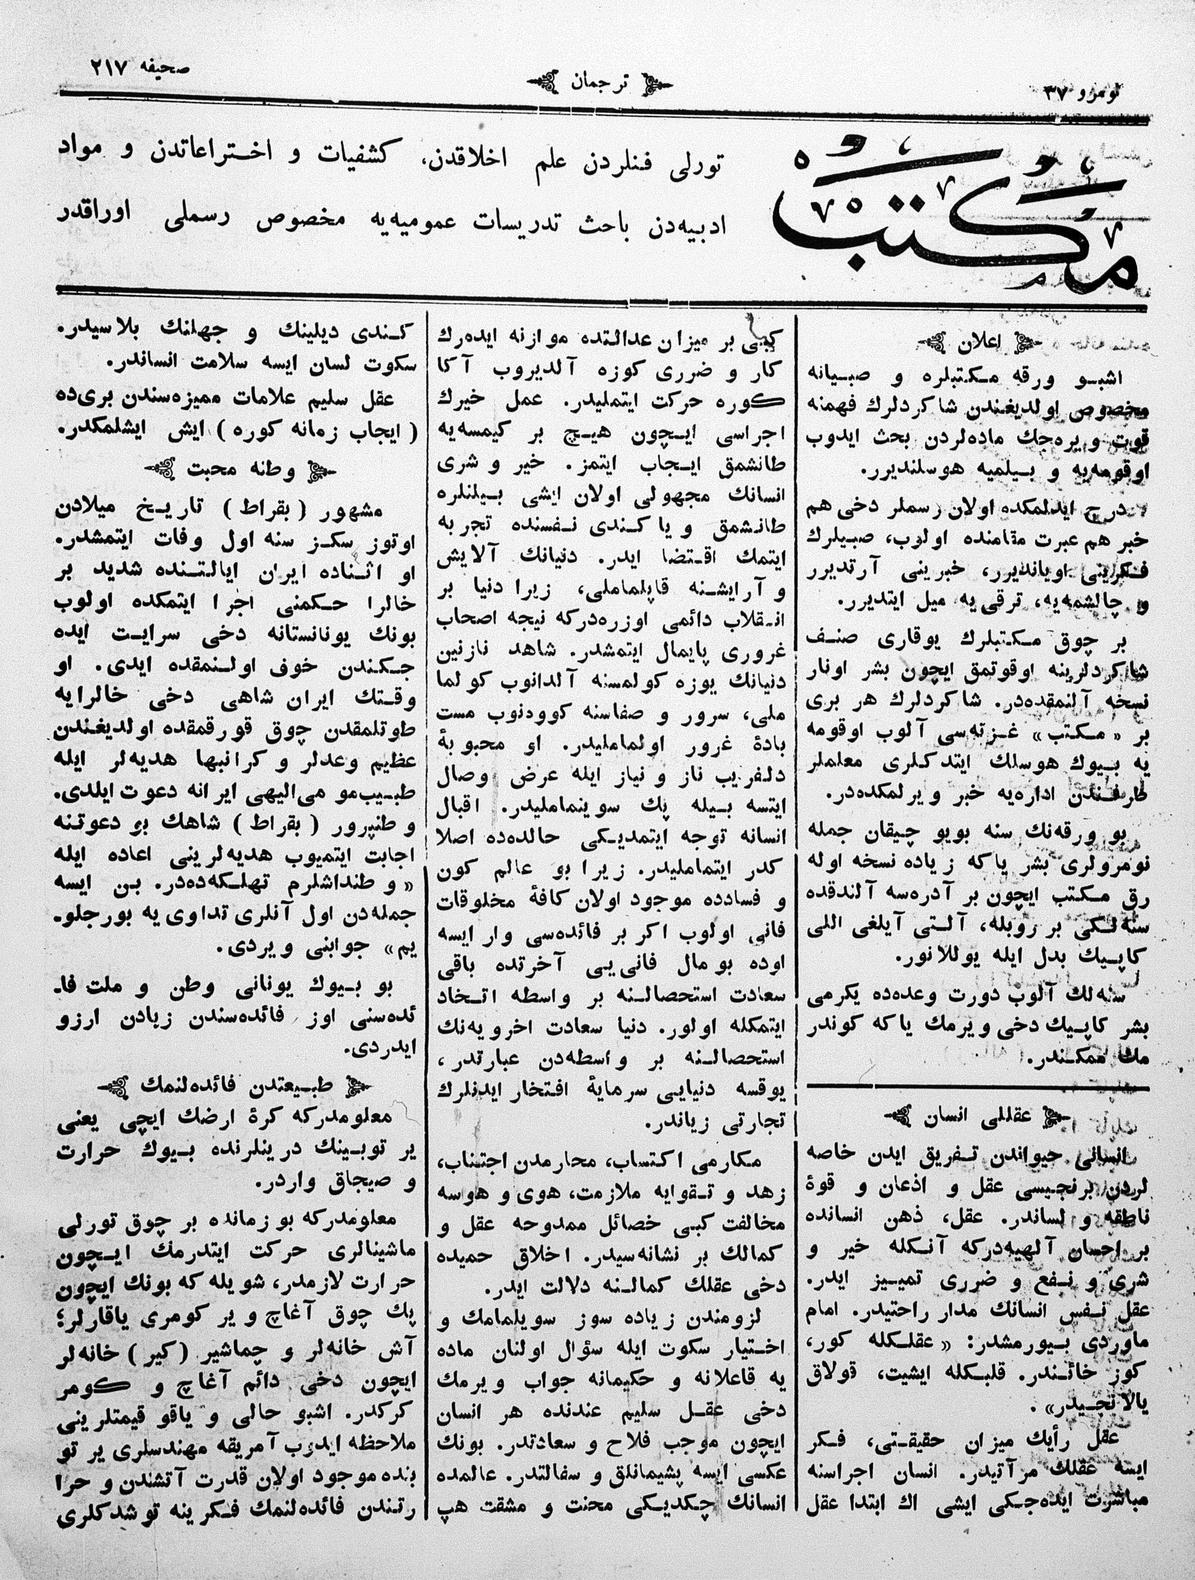 نومرو ٣٧
ترجمان
صحیفه ٢١٧
مكتب
تورلی فنلردن علم اخلاقدن، كشفیات و اختراعاتدن و مواد
ادبیه‌دن باحث تدریسات عمومیه‌یه مخصوص رسملی اوراقدر
اعلان
اشبو ورقه مكتبلره و صبیانه
مخصوص اولدیغندن شاكردلرك فهمنه
قوت ویره‌جك ماده‌لردن بحث ایدوب
اوقومه‌یه و بیلمیه هوسلندیرر.
درج ایدلمكده اولان رسملر دخی هم
خبر هم عبرت مقامنده اولوب، صبیلرك
فكرینی اویاندیرر، خبرینی آرتدیرر
و چالشمه‌یه، ترقی یه میل ایتدیرر.
بر چوق مكتبلرك یوقاری صنف
شاكردلرینه اوقوتمق ایچون بشر اونار
نسخه آلنمقده‌در. شاكردلرك هر بری
بر «مكتب» غزته‌سی آلوب اوقومه
یه بیوك هوسلك ایتدكلری معلملر
طرفندن اداره‌یه خبر ویرلمكده‌در.
بو ورقه‌نك سنه بویو چیقان جمله
نومرولری بشر یاكه زیاده نسخه اوله
رق مكتب ایچون بر آدره‌سه آلندقده
سنه‌لكی بر روبله، آلتی آیلغی اللی
كاپیك بدل ایله یوللانور.
سنه‌لك آلوب دورت وعده‌ده یكرمی
بشر كاپیك دخی ویرمك یاكه كوندر
مك ممكندر.
عقللی انسان
انسانی حیواندن تفریق ایدن خاصه
لردن برنجیسی عقل و اذعان و قوۀ
ناطقه و لساندر. عقل، ذهن انسانده
بر احسان آلهیه‌دركه آنكله خیر و
شری و نفع و ضرری تمییز ایدر.
عقل نفس انسانك مدار راحتیدر. امام
ماوردی بیورمشدر: «عقلكله كور،
كوز خائندر. قلبكله ایشیت، قولاق
یالانجیدر».
عقل رأیك میزان حقیقتی، فكر
ایسه عقلك مرآتیدر. انسان اجراسنه
مباشرت ایده‌جكی ایشی اك ابتدا عقل
كبی بر میزان عدالتده موازنه ایده‌رك
كار و ضرری كوزه آلدیروب آكا
كوره حركت ایتملیدر. عمل خیرك
اجراسی ایچون هیچ بر كیمسه‌یه
طانشمق ایجاب ایتمز. خیر و شری
انسانك مجهولی اولان ایشی بیلنلره
طانشمق و یا كندی نفسنده تجربه
ایتمك اقتضا ایدر. دنیانك آلایش
و آرایشنه قاپلماملی، زیرا دنیا بر
انقلاب دائمی اوزره‌دركه نیجه اصحاب
غروری پایمال ایتمشدر. شاهد نازنین
دنیانك یوزه كولمسنه آلدانوب كولما
ملی، سرور و صفاسنه كوودنوب مست
بادۀ غرور اولماملیدر. او محبوبۀ
دلفریب ناز و نیاز ایله عرض وصال
ایتسه بیله پك سوینماملیدر. اقبال
انسانه توجه ایتمدیكی حالده‌ده اصلا
كدر ایتماملیدر. زیرا بو عالم كون
و فسادده موجود اولان كافۀ مخلوقات
فانی اولوب اكر بر فائده‌سی وار ایسه
اوده بو مال فانی‌یی آخرتده باقی
سعادت استحصالنه بر واسطه اتخاد
ایتمكله اولور. دنیا سعادت اخرویه‌نك
استحصالنه بر واسطه‌دن عبارتدر،
یوقسه دنیایی سرمایۀ افتخار ایدنلرك
تجارتی زیاندر.
مكارمی اكتساب، محارمدن اجتناب،
زهد و تقوایه ملازمت، هوی و هوسه
مخالفت كبی خصائل ممدوحه عقل و
كمالك بر نشانه سیدر. اخلاق حمیده
دخی عقلك كمالنه دلالت ایدر.
لزومندن زیاده سوز سویلمامك و
اختیار سكوت ایله سؤال اولنان ماده
یه قاعلانه و حكیمانه جواب ویرمك
دخی عقل سلیم عندنده هر انسان
ایچون موجب فلاح و سعادتدر. بونك
عكسی ایسه پشیمانلق و سفالتدر. عالمده
انسانك چكدیكی محنت و مشقت هپ
كندی دیلینك و جهلنك بلاسیدر.
سكوت لسان ایسه سلامت انساندر.
عقل سلیم علامات ممیزه‌سندن بری‌ده
(ایجاب زمانه كوره) ایش ایشلمكدر.
وطنه محبت
مشهور (بقراط) تاریخ میلادن
اوتوز سكز سنه اول وفات ایتمشدر.
او اثناده ایران ایالتنده شدید بر
خالرا حكمنی اجرا ایتمكده اولوب
بونك یونانستانه دخی سرایت ایده
جكندن خوف اولنمقده ایدی. او
وقتك ایران شاهی دخی خالرایه
طوتلمقدن چوق قورقمقده اولدیغندن
عظیم وعدلر و كرانبها هدیه‌لر ایله
طبیب مو می‌الیهی ایرانه دعوت ایلدی.
وطنپرور (بقراط) شاهك بو دعوتنه
اجابت ایتمیوب هدیه‌لرینی اعاده ایله
«وطنداشلرم تهلكه‌ده‌در. بن ایسه
جمله‌دن اول آنلری تداوی یه بورجلو-
یم» جوابنی ویردی.
بو بیوك یونانی وطن و ملت فا-
ئده‌سنی اوز فائده‌سندن زیادن ارزو
ایدردی.
طبیعتدن فائده‌لنمك
معلومدركه كرۀ ارضك ایچی یعنی
یر توبینك درینلرنده بیوك حرارت
و صیجاق واردر.
معلومدركه بو زمانده بر چوق تورلی
ماشینالری حركت ایتدرمك ایچون
حرارت لازمدر، شویله كه بونك ایچون
پك چوق آغاچ و یر كومری یاقارلر؛
آش خانه‌لر و چماشیر (كیر) خانه‌لر
ایچون دخی دائم آغاچ و كومر
كركدر. اشبو حالی و یاقو قیمتلرینی
ملاحظه ایدوب آمریقه مهندسلری یر تو
بنده موجود اولان قدرت آتشندن و حرا
رتندن فائده‌لنمك فكرینه توشدكلری